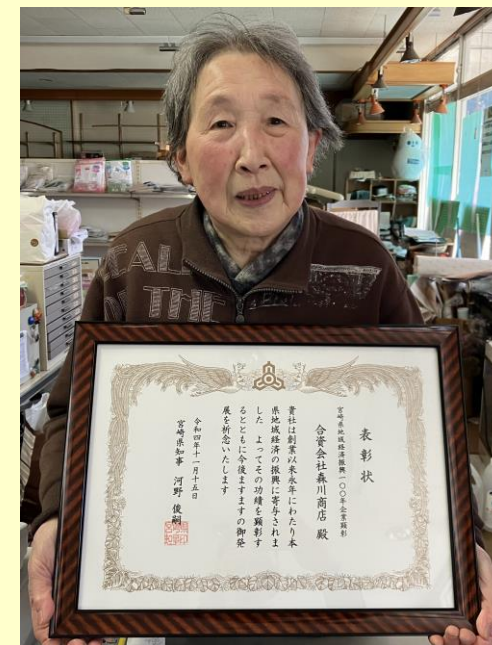 表彰状
宮崎県地域経済振興一〇〇年企業顕彰
合資会社森川商店 殿
貴社は創業以来永年にわたり本
県地域経済の振興に寄与されま
した よってその功績を顕彰す
るとともに今後ますますの御発
展を祈念いたします
令和四年十一月十五日
宮崎県知事 河野 俊嗣